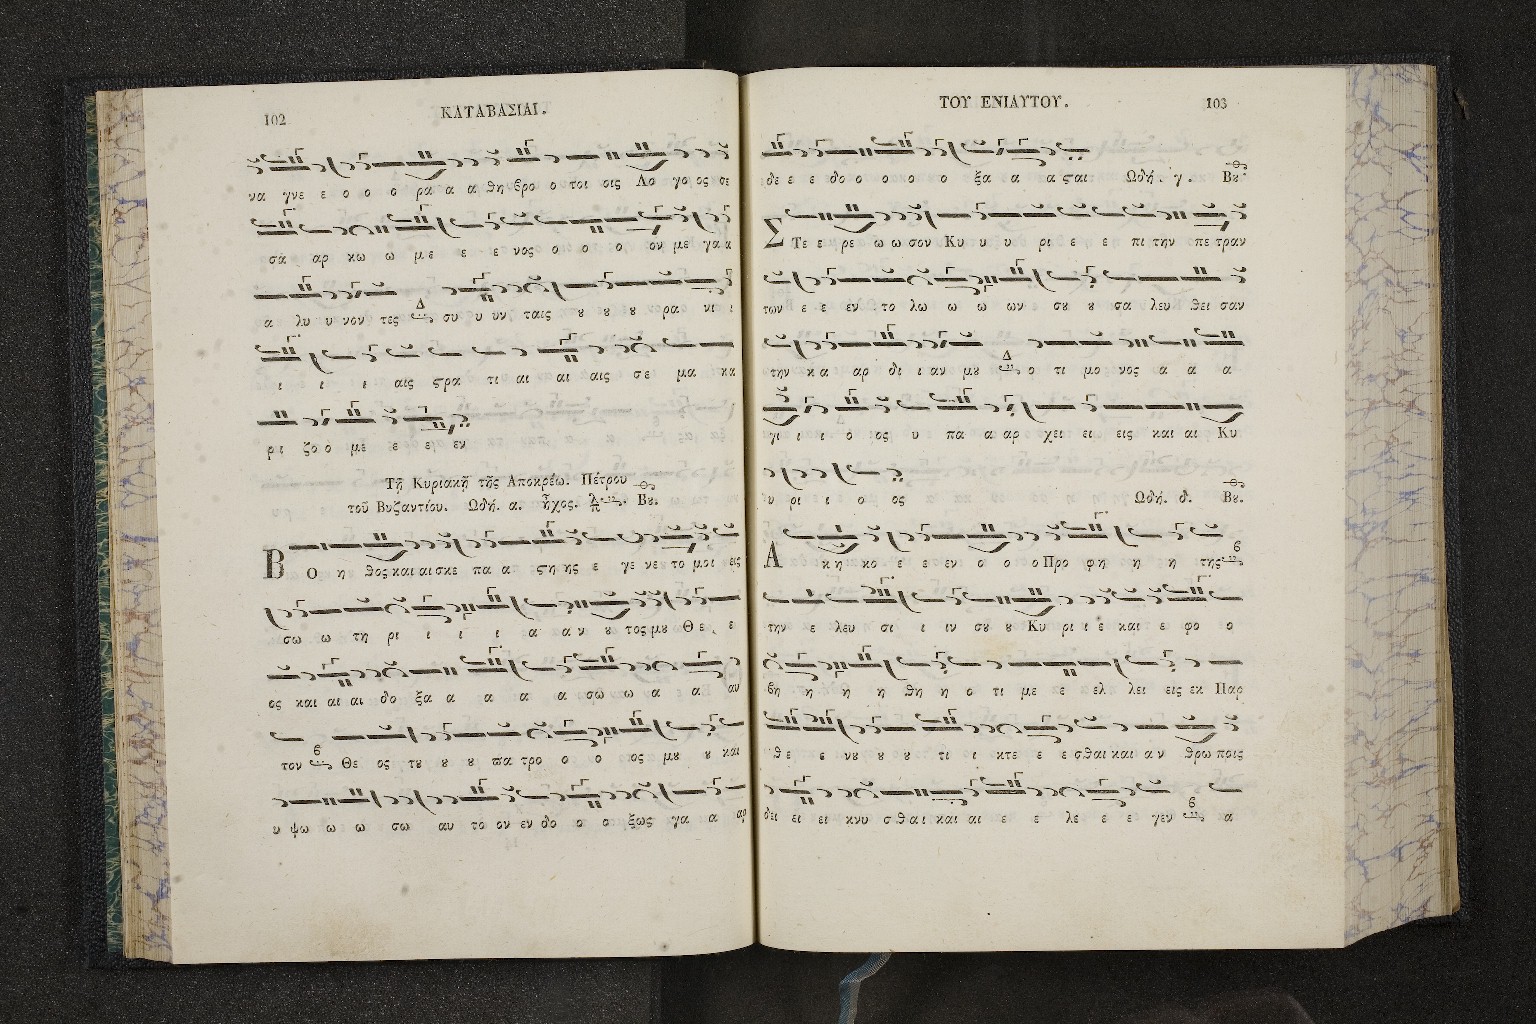 102
ΚΑΤΑΒΑΣΙΑΙ.
να γνε ε ο ο ο ρα α α θη βρο ο τοι οις Λο γο ος σε
σα αρ κω ω με ε ε νος ο ο ο ον με γα α
α λυ υ νον τες Δ συ υ υν ταις ȣ ȣ ȣ ρα νι ι
ι ι ι αις ϛρα τι αι αι αις σε μα κα
ρι ζο ο με ε ε εν
Τῇ Κυριακῇ τῆς Αποκρέω. Πέτρου
τοῦ Βυζαντίου. Ωδή. α. ἦχος. Βȣ.
Β ο η θος και αι σκε πα α ϛη ης ε γε νε το μοι εις
σω ω τη ρι ι ι ι α α ν ȣ τος μȣ Θε ε
ος και αι αι δο ξα α α α α σω ω α α αυ
τον ϐ Θε ος τȣ ȣ ȣ πα τρο ο ο ος μȣ ȣ και
υ ψω ω ω σω αυ το ον εν δο ο ο ξως γα α αρ
ΤΟΥ ΕΝΙΑΥΤΟΥ.
103
δε ε ε δο ο ο ο ο ξα α α α ϛαι Ωδή. γ. Βȣ.
Σ Τε ε ρε ω ω σον Κυ υ υ ρι ε ε πι την πε τραν
των ε ε εν το λω ω ω ων σȣ ȣ σα λευ θει σαν
την κα αρ δι ι αν μȣ Δ ο τι μο νος α α α
γι ι ι ο ος υ πα α αρ χει ει εις και αι Κυ
υ ρι ι ο ος Ωδή. δ. Βȣ.
Α κη κο ε ε εν ο ο ο Προ φη η η της ϐ
την ε λευ σι ι ιν σȣ ȣ Κυ ρι ι ε και ε φο ο
βη η η η θη η ο τι με ε ελ λει εις εκ Παρ
θε ε νȣ ȣ ȣ τι ι κτε ε ε σθαι και αν θρω ποις
δει ει ει κνυ σθαι και αι ε ε λε ε ε γεν ϐ α